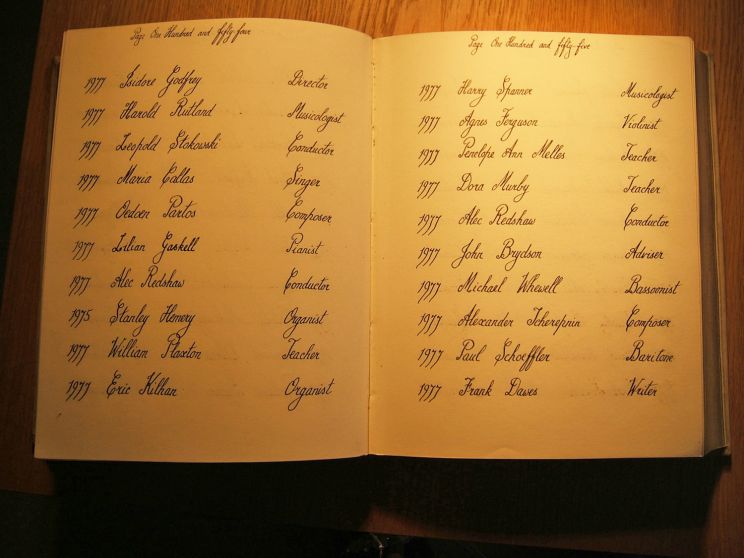 Page One Hundred and fifty-four
1977 Isidore Godfrey Director
1977 Harold Rutland Musicologist
1977 Leopold Stokowski Conductor
1977 Maria Callas Singer
1977 Oedoen Partos Composer
1977 Lilian Gaskell Pianist
1977 Alec Redshaw Conductor
1975 Stanley Henery Organist
1977 William Plaxton Teacher
1977 Eric Kilhan Organist
Page One Hundred and fifty-five
1977 Harry Spanner Musicologist
1977 Agnes Ferguson Violinist
1977 Penelope Ann Melles Teacher
1977 Dora Murby Teacher
1977 Alec Redshaw Conductor
1977 John Brydson Adviser
1977 Michael Whewell Bassoonist
1977 Alexander Tcherepnin Composer
1977 Paul Schoeffler Baritone
1977 Frank Dawes Writer